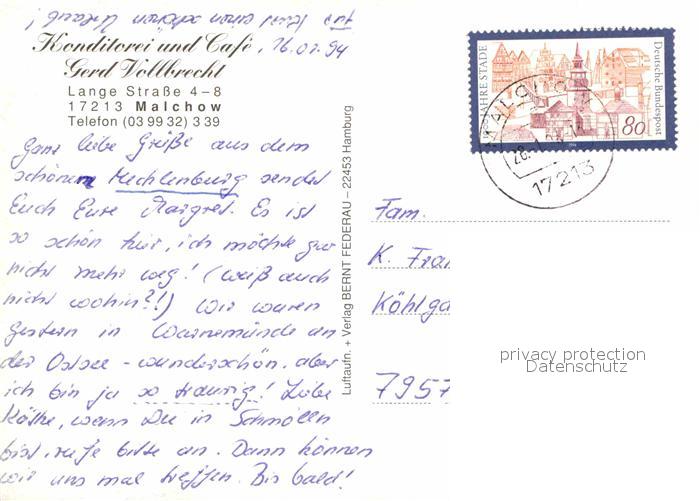 Für's Euch einen schönen Urlaub!
Konditorei und Café, 26.07.94
Gerd Vollbrecht
Lange Straße 4–8
17213 Malchow
Telefon (03 99 32) 3 39
Ganz liebe Grüße aus dem
schönem Mecklenburg sendet
Euch Eure Margret. Es ist
so schön hier, ich möchte gar
nicht mehr weg! (weiß auch
nicht wohin?!) Wir waren
gestern in Warnemünde an
der Ostsee - wunderschön, aber
ich bin ja so traurig! Liebe
Käthe, wenn Du in Schmölln
bist, rufe bitte an. Dann können
wir uns mal treffen. Bis bald!
Luftaufn. + Verlag BERNT FEDERAU – 22453 Hamburg
JAHRE STADE
Deutsche Bundespost
80
MALCHOW
17213
Fam.
K. Fra
Köhlga
7957
privacy protection
Datenschutz